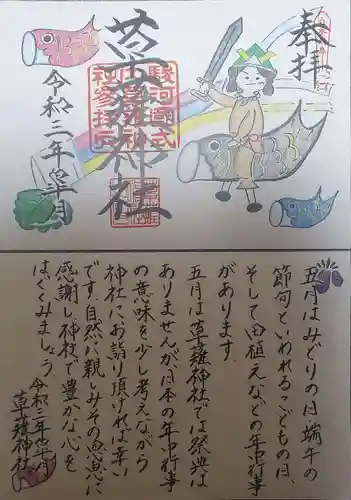 奉拝
草薙神社
駿河国式
内草薙神
社参拝示
令和三年皐月
五月はみどりの日、端午の
節句といわれるこどもの日、
そして田植えなどの年中行事
があります。
五月は草薙神社では祭典は
ありませんが、日本の年中行事
の意味を少し考えながら
神社にお詣り頂ければ幸い
です。自然に親しみその恩恵に
感謝し、神社で豊かな心を
はぐくみましょう。
令和三年皐月
草薙神社